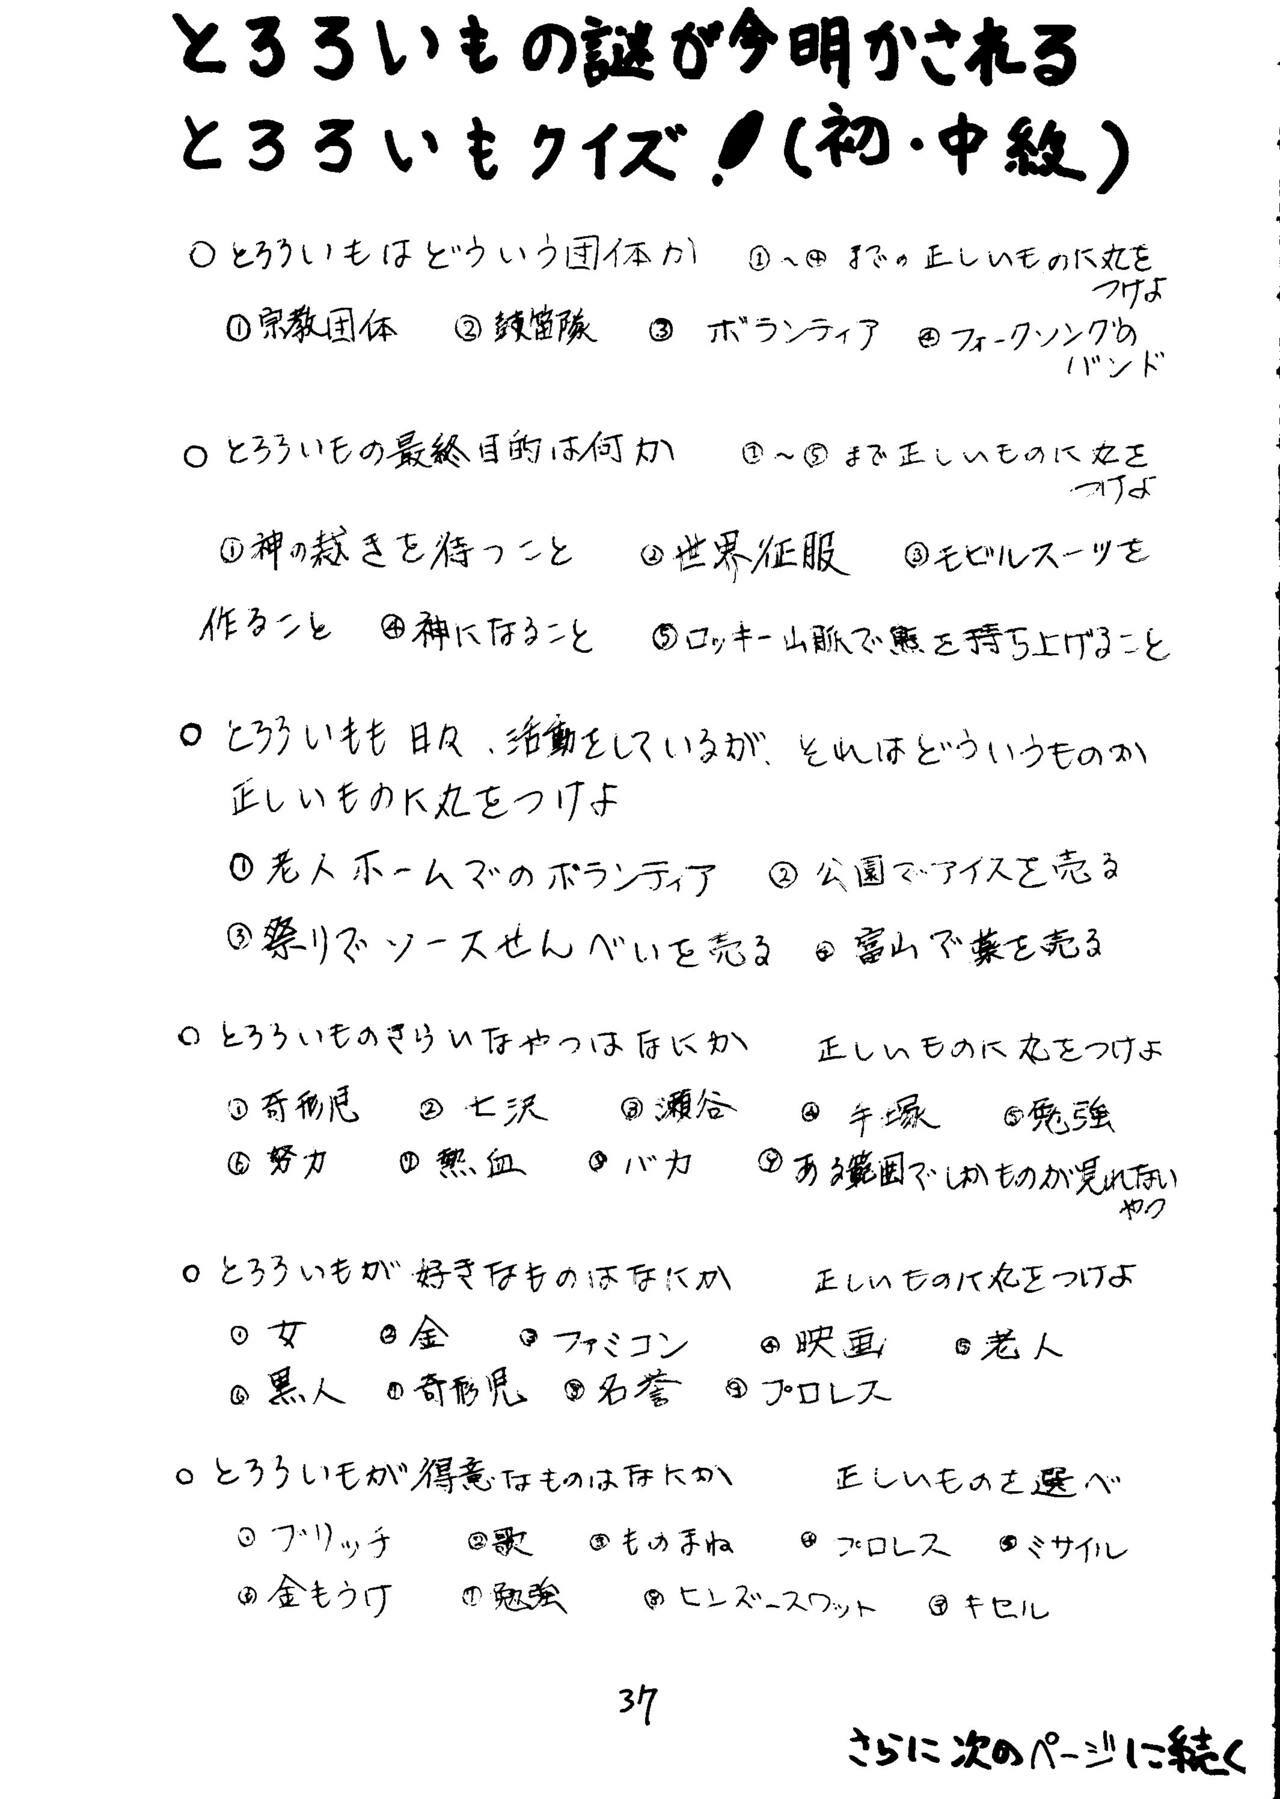 とろろいもの謎が今明かされる
とろろいもクイズ！(初・中級)
○とろろいもはどういう団体か ①～④までの正しいものに丸を
つけよ
①宗教団体 ②鼓笛隊 ③ボランティア ④フォークソングの
バンド
○とろろいもの最終目的は何か ①～⑤まで正しいものに丸を
つけよ
①神の裁きを待つこと ②世界征服 ③モビルスーツを
作ること ④神になること ⑤ロッキー山脈で熊を持ち上げること
○とろろいもも日々、活動をしているが、それはどういうものか
正しいものに丸をつけよ
①老人ホームでのボランティア ②公園でアイスを売る
③祭りでソースせんべいを売る ④富山で薬を売る
○とろろいものきらいなやつはなにか 正しいものに丸をつけよ
①奇形児 ②七沢 ③瀬谷 ④手塚 ⑤勉強
⑥努力 ⑦熱血 ⑧バカ ⑨ある範囲でしかものが見れない
やつ
○とろろいもが好きなものはなにか 正しいものに丸をつけよ
①女 ②金 ③ファミコン ④映画 ⑤老人
⑥黒人 ⑦奇形児 ⑧名誉 ⑨プロレス
○とろろいもが得意なものはなにか 正しいものを選べ
①ブリッヂ ②歌 ③ものまね ④プロレス ⑤ミサイル
⑥金もうけ ⑦勉強 ⑧ヒンズースワット ⑨キセル
37
さらに次のページに続く